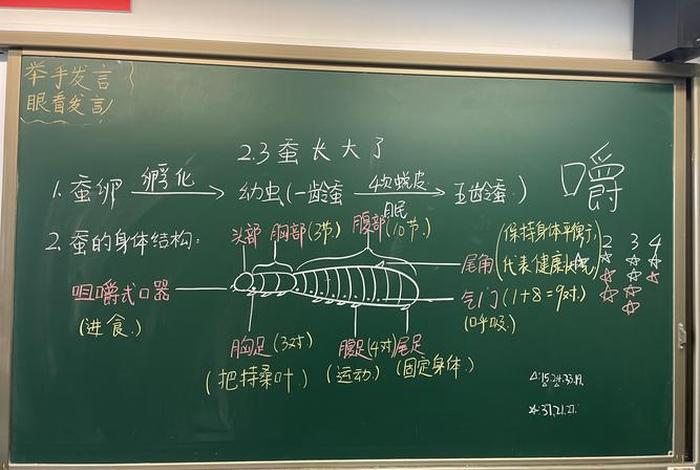 举手发言
眼看发言
2.3 蚕长大了
1. 蚕卵 孵化 幼虫(一龄蚕 4次蜕皮 五龄蚕.)
眠
嚼
2. 蚕的身体结构:
头部 胸部(3节) 腹部(10节.)
尾角(保持身体平衡,
代表健康状况)
2 3 4
咀嚼式口器
(进食.)
气门(1+8=9对)
(呼吸.)
胸足(3对) 腹足(4对) 尾足
(把持桑叶.) (运动) (固定身体.)